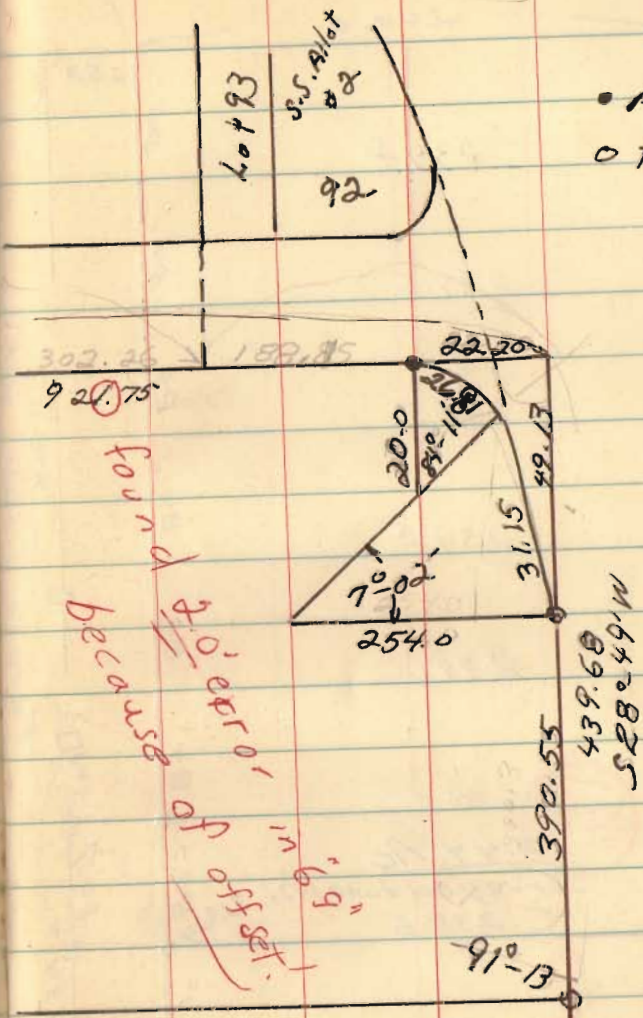 Lot 93
S.S. Allot
#2
92
302.26
189.85
921.75
22.20
26.81
20.0
84°-11'
49.13
31.15
7°-02'
254.0
439.68
S28°-49'W
390.55
91°-13
found 2.0' error in "69"
because of offset!